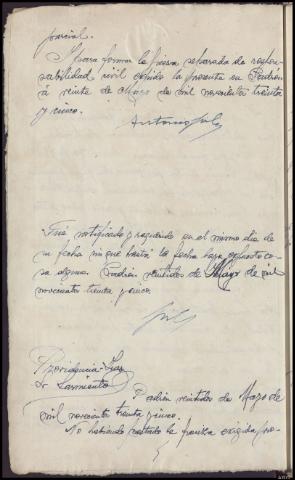 parcial.
Y para formar la pieza separada de respon-
sabilidad civil expido la presente en Padrón
á veinte de Mayo de mil novecientos treinta
y cinco.
Fué notificado y requerido en el mismo día de
su fecha sin que hasta la fecha haya prestado co-
sa alguna. Padrón veintidos de Mayo de mil
novecientos treinta y cinco.
Providencia Juez
Sr Sarmiento
Padrón veintidos de Mayo de
mil novecientos treinta y cinco.
No habiendo prestado la fianza exigida pro-